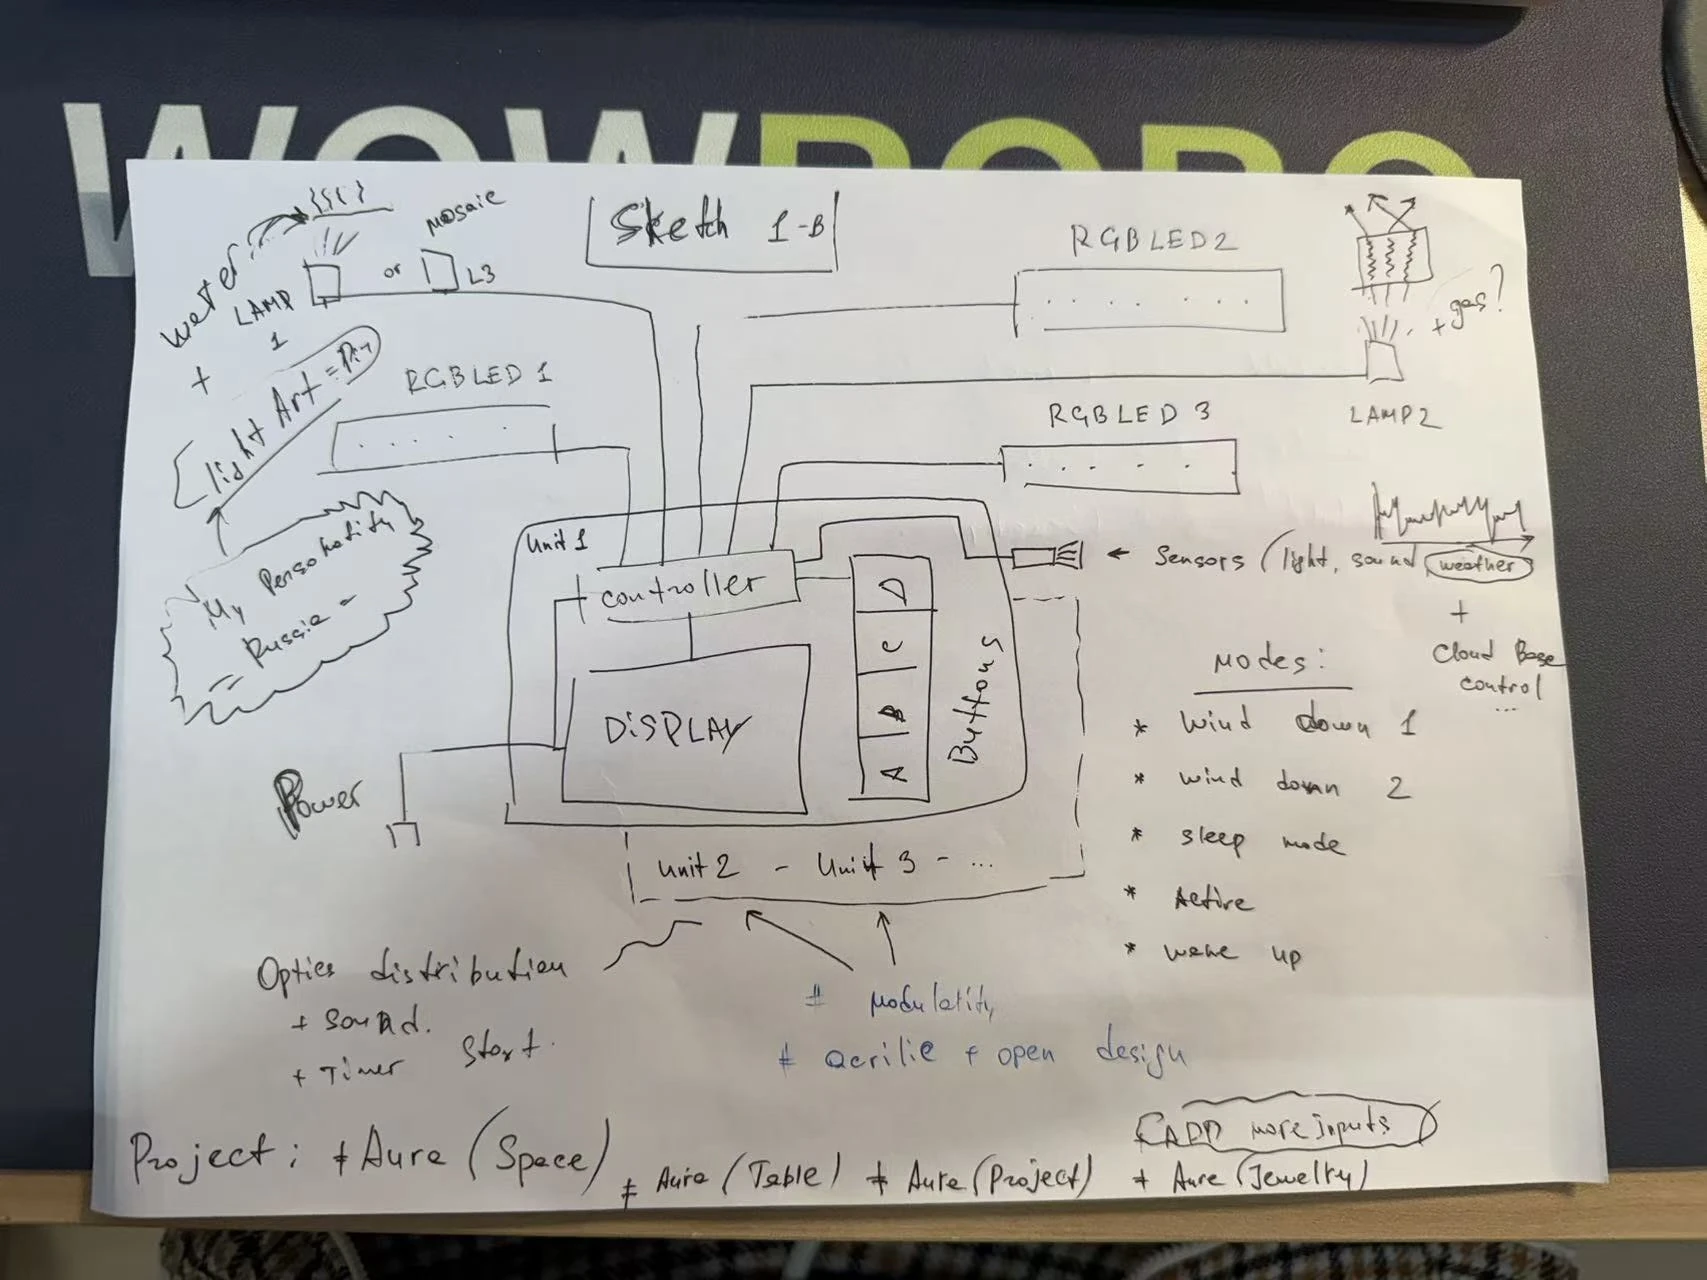 WOWROBO
Sketch 1-B
mosaic
or
L3
LAMP
1
weter
+
light Art =
RGBLED 1
RGBLED2
gas?
+
LAMP2
RGBLED 3
Unit 1
controller
DiSPLAY
A B C D
Buttons
← Sensors (light, sound, weather
+
Cloud Base
control
...
My Personolity
= Russia =
Power
Modes:
* Wind down 1
* wind down 2
* sleep mode
* Active
* wake up
Unit 2 - Unit 3 - ...
Optics distribution
+ sound.
+ Timer start.
# modulatity
# acrilic + open design
ADD more inputs
Project: # Aura (Space)
# Aura (Table) # Aura (Project) + Aura (Jewelry)